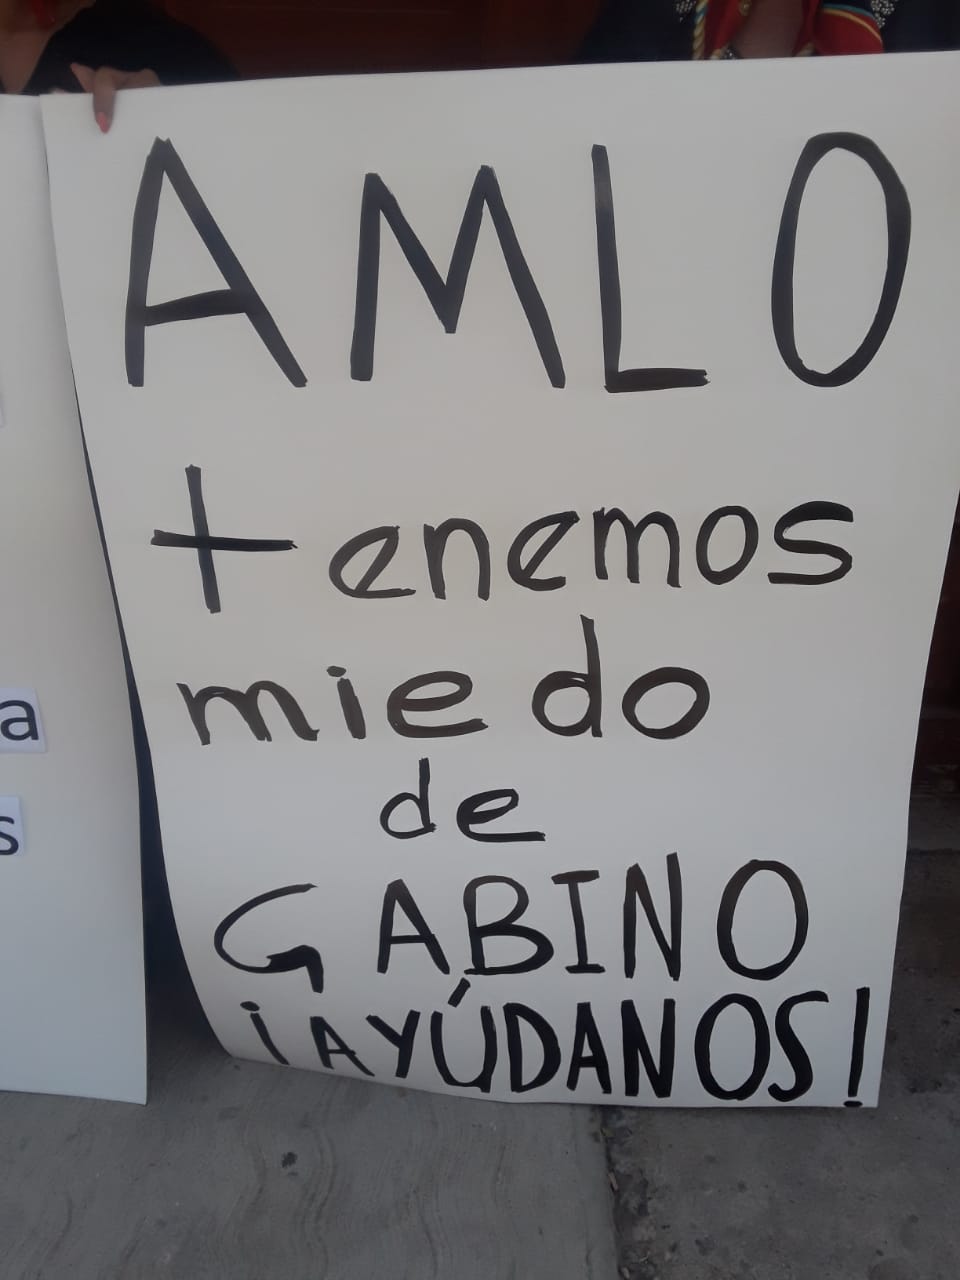 AMLO
tenemos
miedo
de
GABINO
¡AYÚDANOS!
a
s